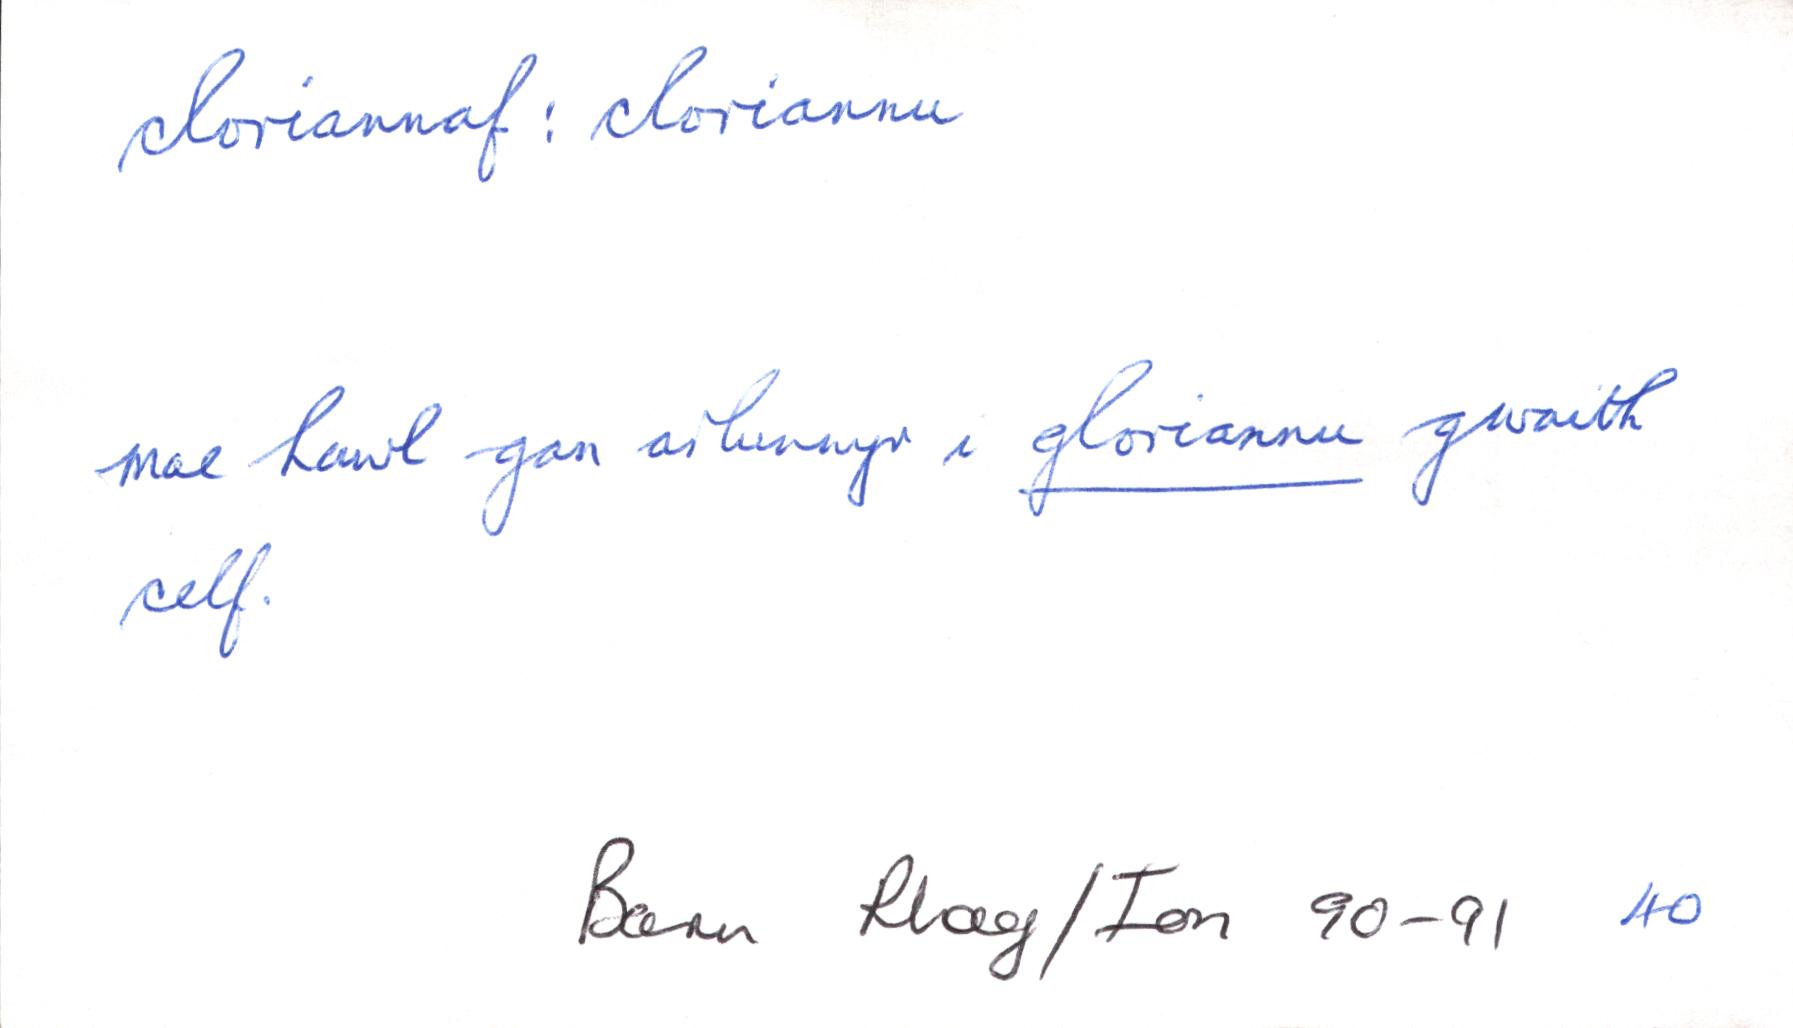 cloriannaf: cloriannu
mae hawl gan arlunnyr i gloriannu gwaith
celf.
Barn Rhag/Ion 90-91 40